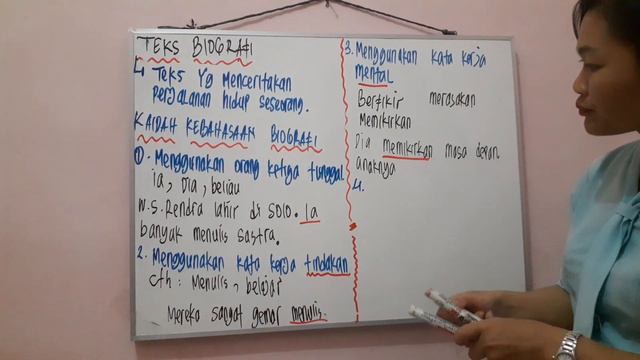 TEKS BIOGRAFI
↳ Teks Yg Menceritakan
Perjalanan hidup seseorang.
KAIDAH KEBAHASAAN BIOGRAFI
1. Menggunakan orang ketiga tunggal
ia, Dia, beliau
W.S. Rendra lahir di Solo. Ia
banyak menulis sastra.
2. Menggunakan kata kerja tindakan
cth: Menulis, belajar
Mereka sangat gemar menulis.
3. Menggunakan kata kerja
mental
Berfikir merasakan
Memikirkan
Dia memikirkan masa depan
anaknya
4.